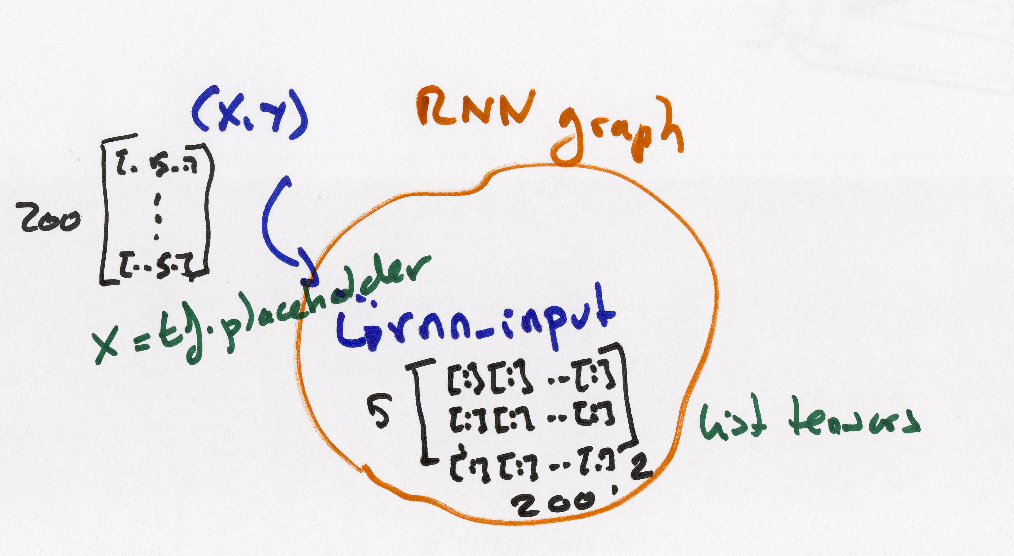 (X,Y)
RNN graph
[. 5..]
200
⋮
[..5.]
X = tf.placeholder
rnn_input
5
[:] [:] ..[:]
[:] [:] ..[:]
[:] [:] ..[:]
200, 2
list tensors